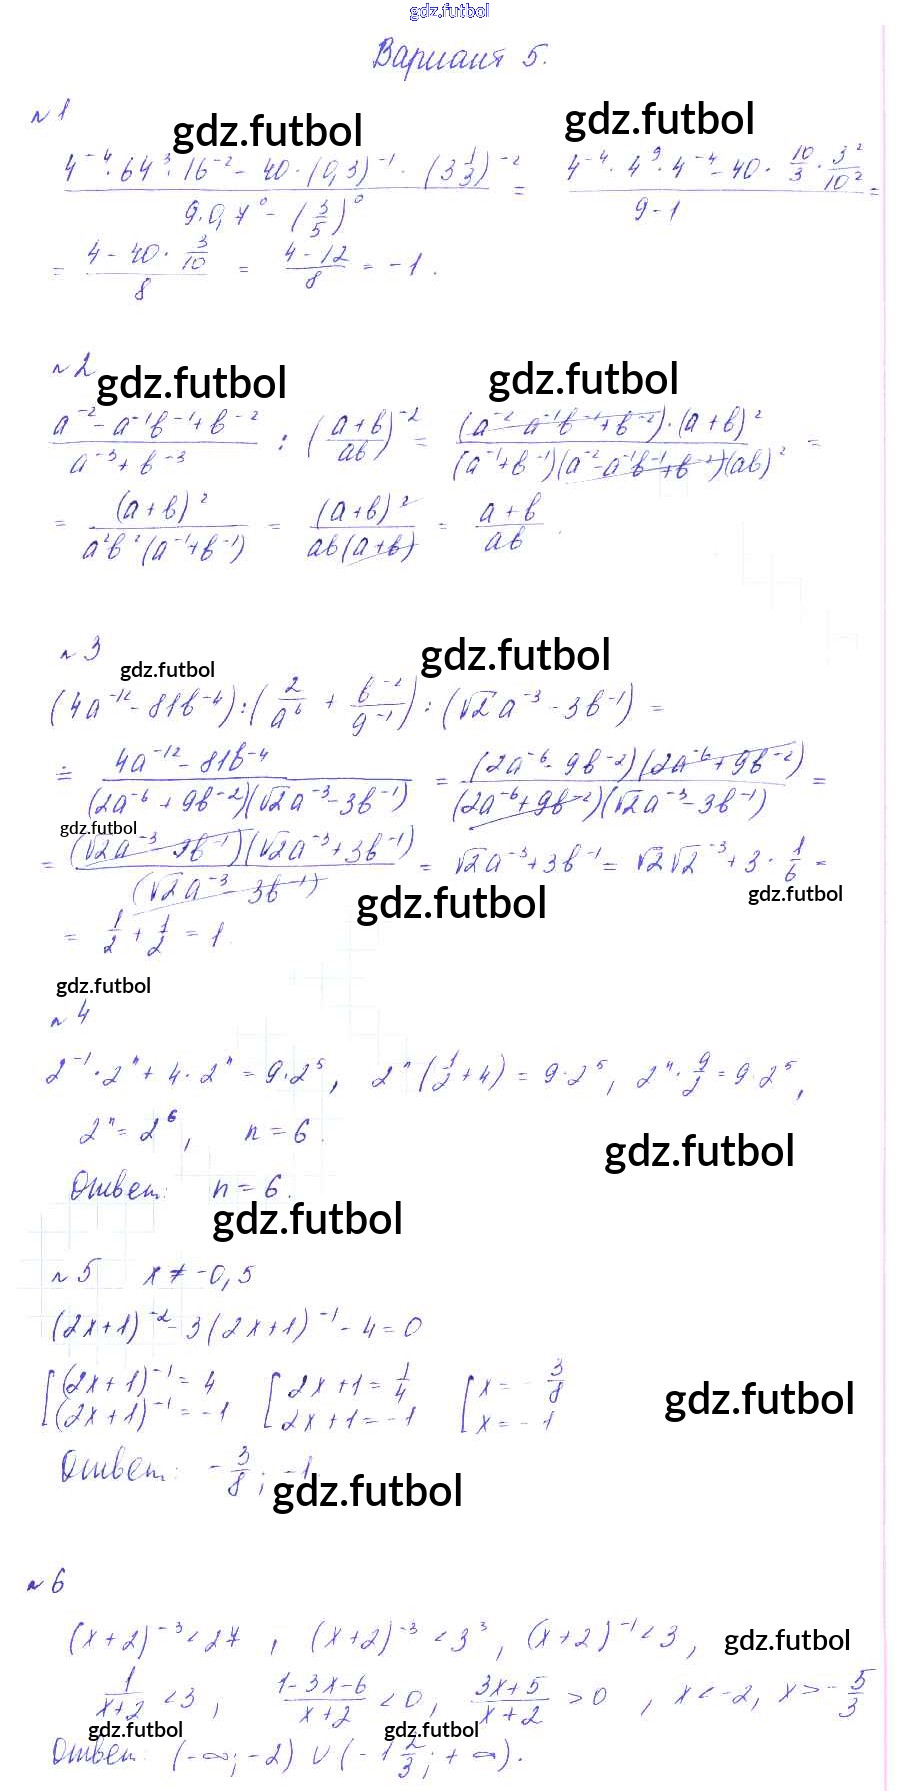 gdz.futbol
Вариант 5.
№1
gdz.futbol gdz.futbol
(4⁻⁴·64³·16⁻² - 40·(0,3)⁻¹·(3 1/3)⁻²)/(9·0,7⁰ - (3/5)⁰) = (4⁻⁴·4⁹·4⁻⁴ - 40·10/3·3²/10²)/(9-1) =
= (4 - 40·3/10)/8 = (4-12)/8 = -1.
№2
gdz.futbol gdz.futbol
(a⁻² - a⁻¹b⁻¹ + b⁻²)/(a⁻³ + b⁻³) : ((a+b)/ab)⁻² = ((a⁻² - a⁻¹b⁻¹ + b⁻²)·(a+b)²)/((a⁻¹+b⁻¹)(a⁻² - a⁻¹b⁻¹ + b⁻²)(ab)²) =
= (a+b)²/(a²b²(a⁻¹+b⁻¹)) = (a+b)²/(ab(a+b)) = (a+b)/ab.
№3
gdz.futbol gdz.futbol
(4a⁻¹² - 81b⁻⁴):(2/a⁶ + b⁻²/9⁻¹):(√2a⁻³ - 3b⁻¹) =
= (4a⁻¹² - 81b⁻⁴)/((2a⁻⁶ + 9b⁻²)(√2a⁻³ - 3b⁻¹)) = ((2a⁻⁶ - 9b⁻²)(2a⁻⁶ + 9b⁻²))/((2a⁻⁶ + 9b⁻²)(√2a⁻³ - 3b⁻¹)) =
gdz.futbol
= ((√2a⁻³ - 3b⁻¹)(√2a⁻³ + 3b⁻¹))/(√2a⁻³ - 3b⁻¹) = √2a⁻³ + 3b⁻¹ = √2√2⁻³ + 3·1/6 =
gdz.futbol gdz.futbol
= 1/2 + 1/2 = 1.
gdz.futbol
№4
2⁻¹·2ⁿ + 4·2ⁿ = 9·2⁵, 2ⁿ(1/2 + 4) = 9·2⁵, 2ⁿ·9/2 = 9·2⁵,
2ⁿ = 2⁶, n = 6.
gdz.futbol
Ответ: n = 6.
gdz.futbol
№5 x ≠ -0,5
(2x+1)⁻² - 3(2x+1)⁻¹ - 4 = 0
[(2x+1)⁻¹ = 4 [2x+1 = 1/4 [x = -3/8
[(2x+1)⁻¹ = -1 [2x+1 = -1 [x = -1
gdz.futbol
Ответ: -3/8; -1
gdz.futbol
№6
(x+2)⁻³ < 27, (x+2)⁻³ < 3³, (x+2)⁻¹ < 3,
gdz.futbol
1/(x+2) < 3, (1-3x-6)/(x+2) < 0, (3x+5)/(x+2) > 0, x < -2, x > -5/3
gdz.futbol gdz.futbol
Ответ: (-∞; -2) ∪ (-1 2/3; +∞).